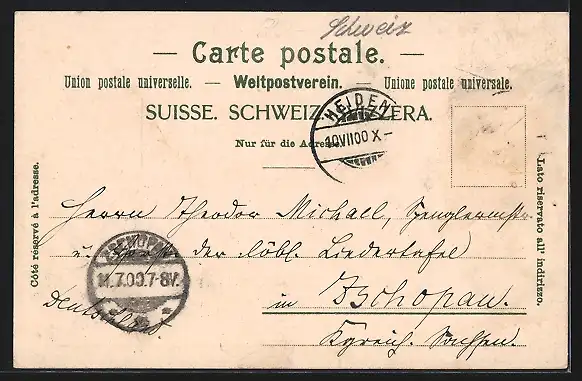 Schweiz
— Carte postale. —
Union postale universelle. — Weltpostverein. — Unione postale universale.
SUISSE. SCHWEIZ. SVIZZERA.
Nur für die Adresse.
HEIDEN
10 VII 00 X–
Côté réservé à l'adresse.
Lato riservato all' indirizzo.
Herrn Theodor Michael, Spenglermstr.
u. der löbl. Liedertafel
ZSCHOPAU
11.7.00.7-8V.
in Zschopau.
Deutschland
Kgreich. Sachsen.